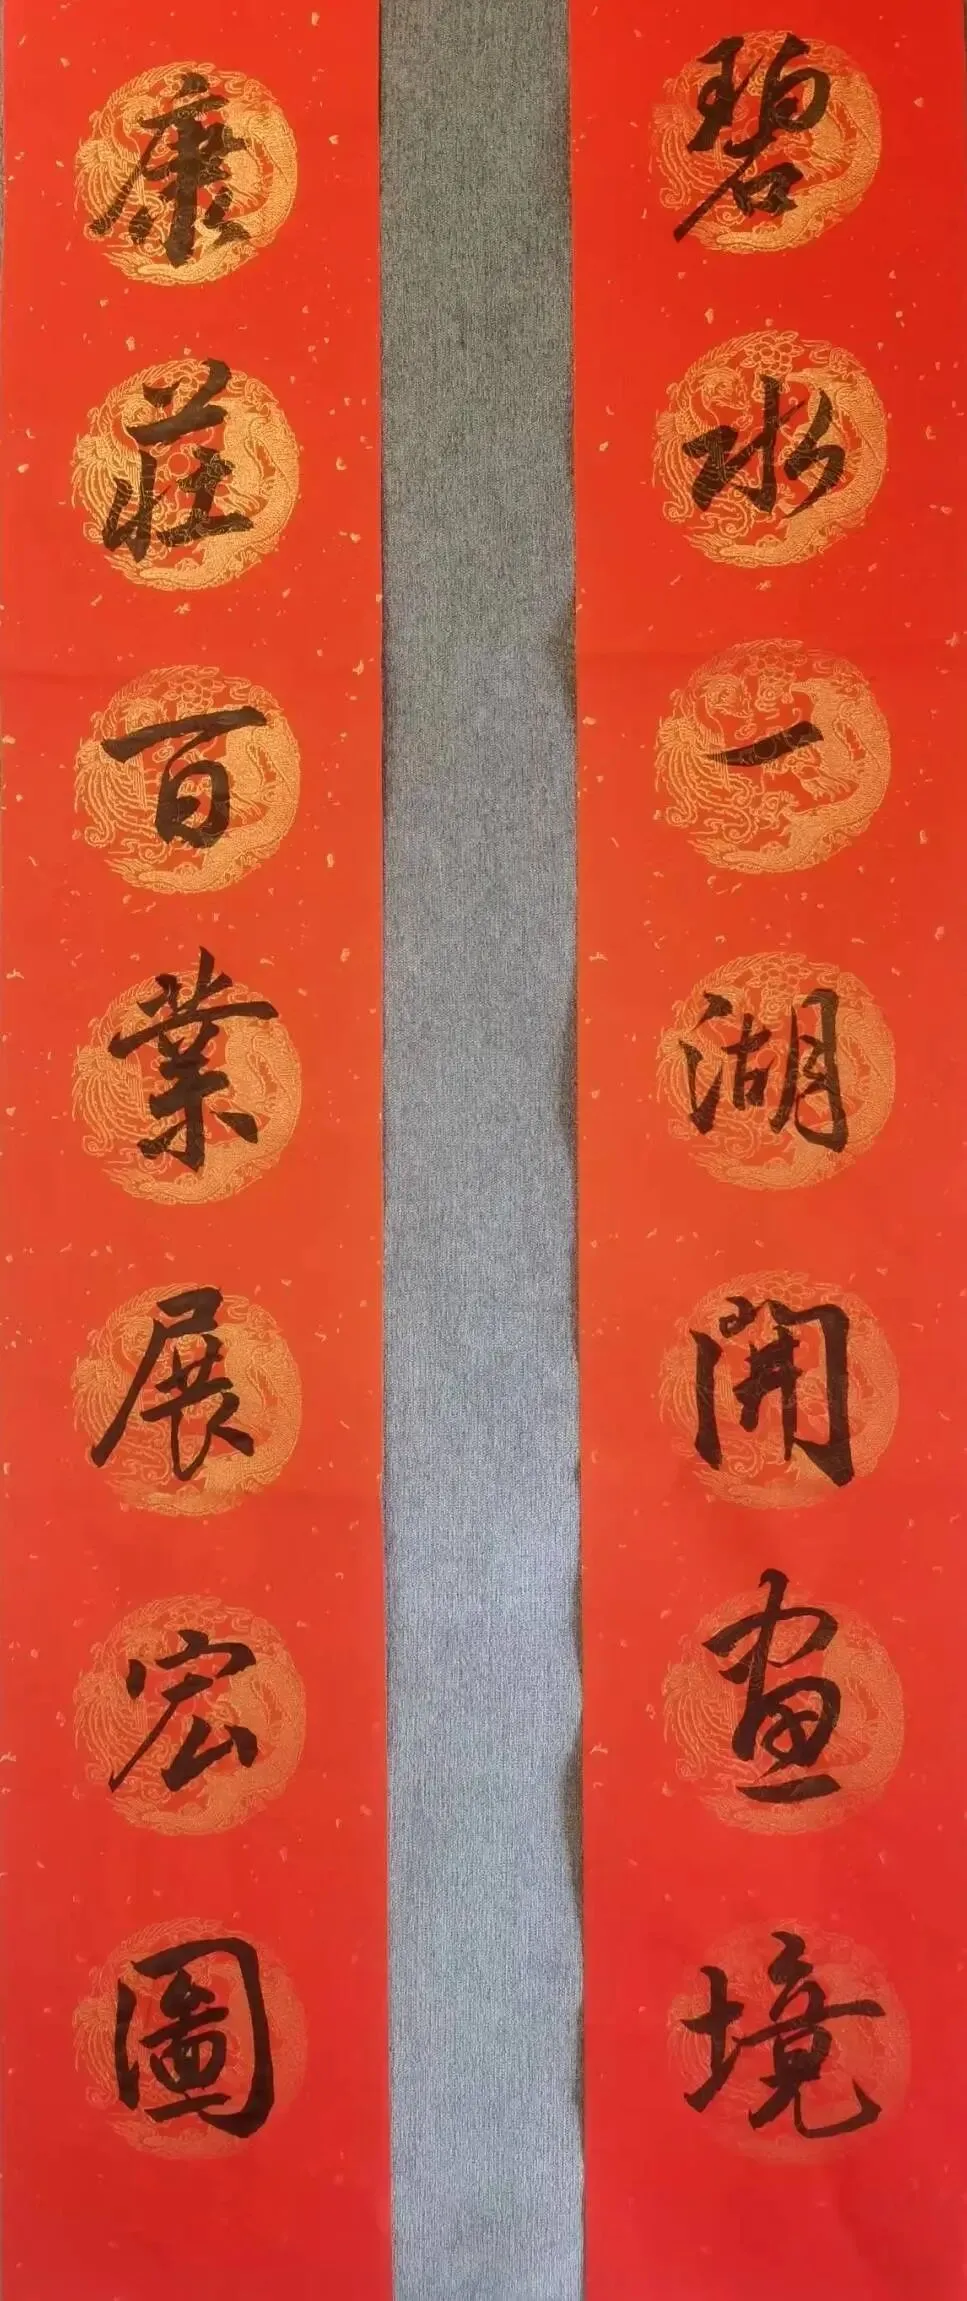 碧水一湖開畫境
康莊百業展宏圖